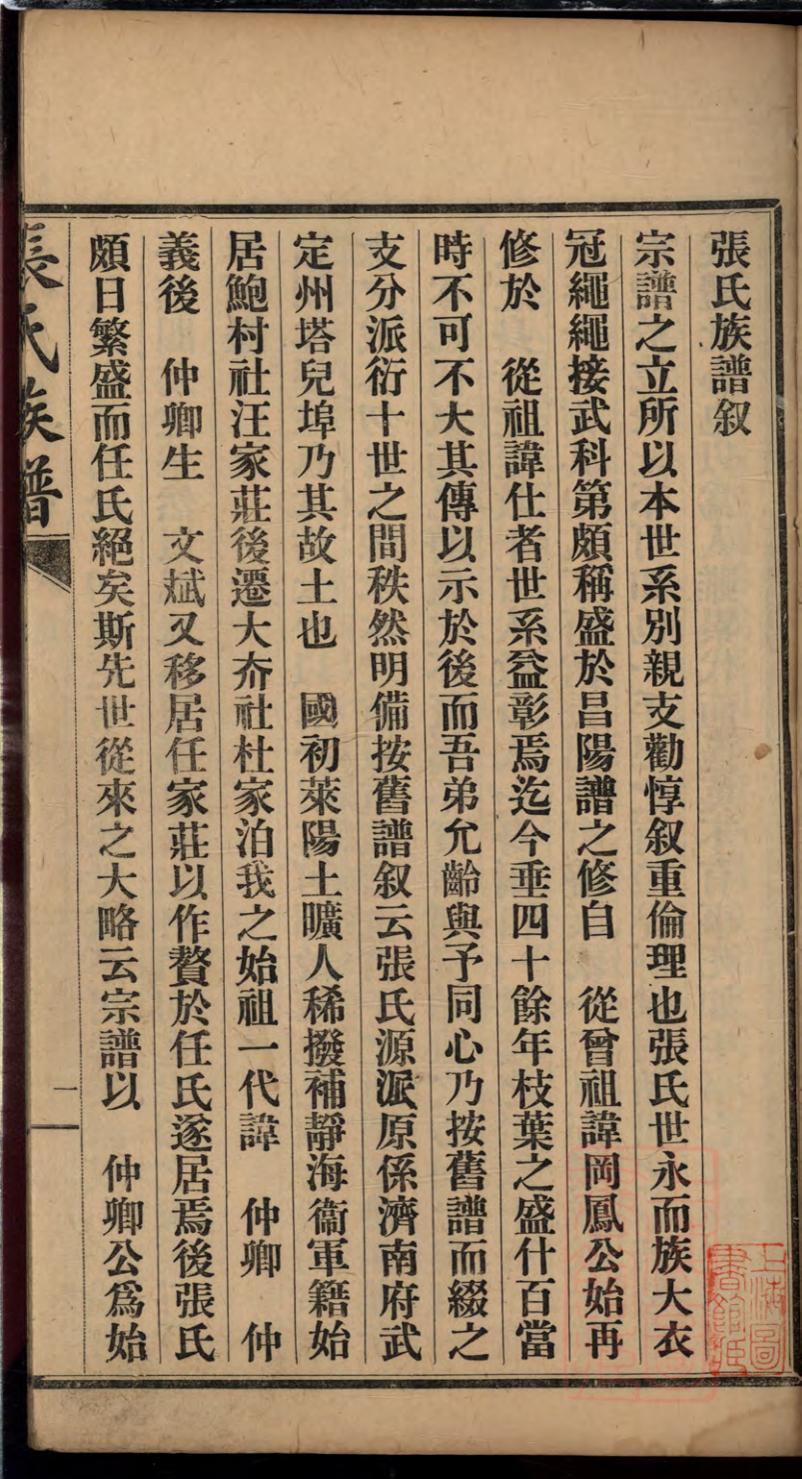 張氏族譜叙
宗譜之立所以本世系別親支勸惇叙重倫理也張氏世永而族大衣
冠繩繩接武科第頗稱盛於昌陽譜之修自　從曾祖諱岡鳳公始再
修於　從祖諱仕者世系益彰焉迄今垂四十餘年枝葉之盛什百當
時不可不大其傳以示於後而吾弟允齡與予同心乃按舊譜而綴之
支分派衍十世之間秩然明備按舊譜叙云張氏源派原係濟南府武
定州塔兒埠乃其故土也　國初萊陽土曠人稀撥補靜海衞軍籍始
居鮑村社汪家莊後遷大夼社杜家泊我之始祖一代諱　仲卿　仲
義後　仲卿生　文斌又移居任家莊以作贅於任氏遂居焉後張氏
頗日繁盛而任氏絕矣斯先世從來之大略云宗譜以　仲卿公爲始
張氏族譜
一
上海圖書館藏